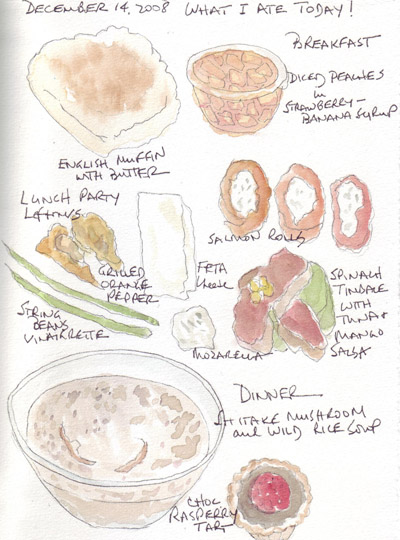 DECEMBER 14, 2008 WHAT I ATE TODAY!
BREAKFAST
DICED PEACHES
in
STRAWBERRY-
BANANA SYRUP
ENGLISH MUFFIN
WITH BUTTER
LUNCH PARTY
SALMON ROLLS
GRILLED
ORANGE
PEPPER
FETA
cheese
SPINACH
WITH
TUNA +
MANGO
SALSA
STRING
BEANS
VINAIGRETTE
MOZARELLA
DINNER
SHITAKE MUSHROOM
and WILD RICE SOUP
CHOC
RASPBERRY
TART